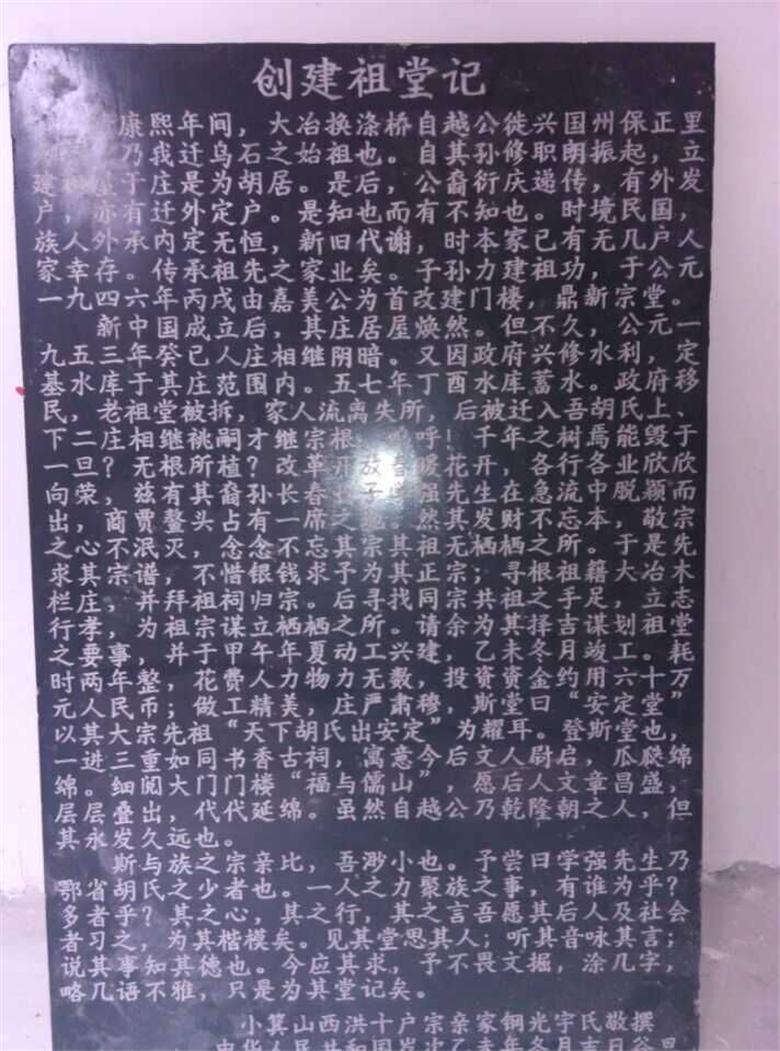 创建祖堂记
康熙年间，大冶换涤桥自越公徙兴国州保正里
乃我迁乌石之始祖也。自其孙修职朗振起，立
建于庄是为胡居。是后，公裔衍庆递传，有外发
户，亦有迁外定户。是知也而有不知也。时境民国，
族人外承内定无恒，新旧代谢，时本家已有无几户人
家幸存。传承祖先之家业矣。子孙力建祖功，于公元
一九四六年丙戌由嘉美公为首改建门楼，鼎新宗堂。
新中国成立后，其庄居屋焕然。但不久，公元一
九五三年癸已人庄相继阴暗。又因政府兴修水利，定
基水库于其庄范围内。五七年丁酉水库蓄水。政府移
民，老祖堂被拆，家人流离失所，后被迁入吾胡氏上、
下二庄相继祧嗣才继宗根，呼！千年之树焉能毁于
一旦？无根所植？改革开放春暖花开，各行各业欣欣
向荣，兹有其裔孙长春长子学强先生在急流中脱颖而
出，商贾鳌头占有一席之地。然其发财不忘本，敬宗
之心不泯灭，念念不忘其宗其祖无栖栖之所。于是先
求其宗谱，不惜银钱求予为其正宗；寻根祖籍大冶木
栏庄，并拜祖祠归宗。后寻找同宗共祖之手足，立志
行孝，为祖宗谋立栖栖之所。请余为其择吉谋划祖堂
之要事，并于甲午年夏动工兴建，乙未冬月竣工。耗
时两年整，花费人力物力无数，投资资金约用六十万
元人民币；做工精美，庄严肃穆，斯堂曰“安定堂”
以其大宗先祖“天下胡氏出安定”为耀耳。登斯堂也，
一进三重如同书香古祠，寓意今后文人尉启，瓜瓞绵
绵。细阅大门门楼“福与儒山”，愿后人文章昌盛，
层层叠出，代代延绵。虽然自越公乃乾隆朝之人，但
其永发久远也。
斯与族之宗亲比，吾渺小也。予尝曰学强先生乃
鄂省胡氏之少者也。一人之力聚族之事，有谁为乎？
多者乎？其之心，其之行，其之言吾愿其后人及社会
者习之，为其楷模矣。见其堂思其人；听其音咏其言；
说其事知其德也。今应其求，予不畏文掘，涂几字，
略几语不雅，只是为其堂记矣。
小箕山西洪十户宗亲家钢光宇氏敬撰
中华人民共和国岁次乙未年冬月吉日谷旦